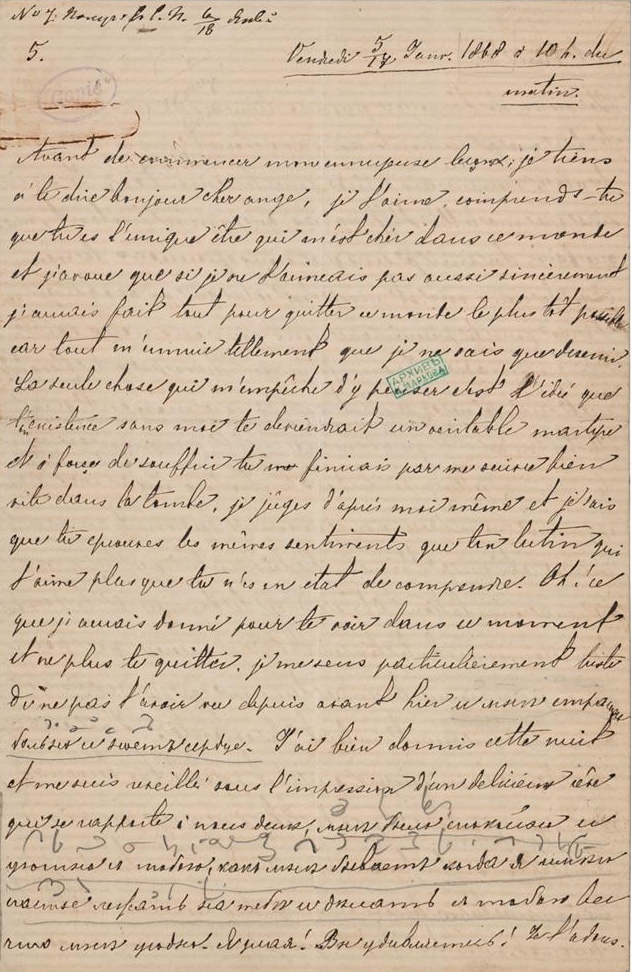 5.
Vendredi 5/17 Janv. 1868 à 10 h. du
matin.
Copié
Avant de commencer mon ennuyeuse leçon, je tiens
à te dire bonjour cher ange, je t'aime, comprends-tu
que tu es l'unique être qui m'est cher dans ce monde
et j'avoue que si je ne t'aimais pas aussi sincèrement
j'aurais fait tout pour quitter ce monde le plus tôt possible
car tout m'ennuie tellement que je ne sais que devenir.
АРХИВЪ
La seule chose qui m'empêche d'y penser c'est l'idée que
l'existence sans moi te deviendrait un veritable martyre
et à force de souffrir tu finirais par me suivre bien
vite dans la tombe, je juges d'après moi même et je sais
que tu eprouves les mêmes sentiments que ton lutin qui
t'aime plus que tu n'es en etat de comprendre. Oh! ce
que j'aurais donné pour te voir dans ce moment
et ne plus te quitter. je me sens particulièrement triste
de ne pas t'avoir vu depuis avant hier и мнѣ
сердце. J'ai bien dormis cette nuit
et me suis reveillé sous l'impression d'un delicieux rêve
qui se rapporte à nous deux, мнѣ было спокойно и
тобою, какъ мнѣ бываетъ когда я
тебя и тобою
мнѣ нужно. Je t'adore.